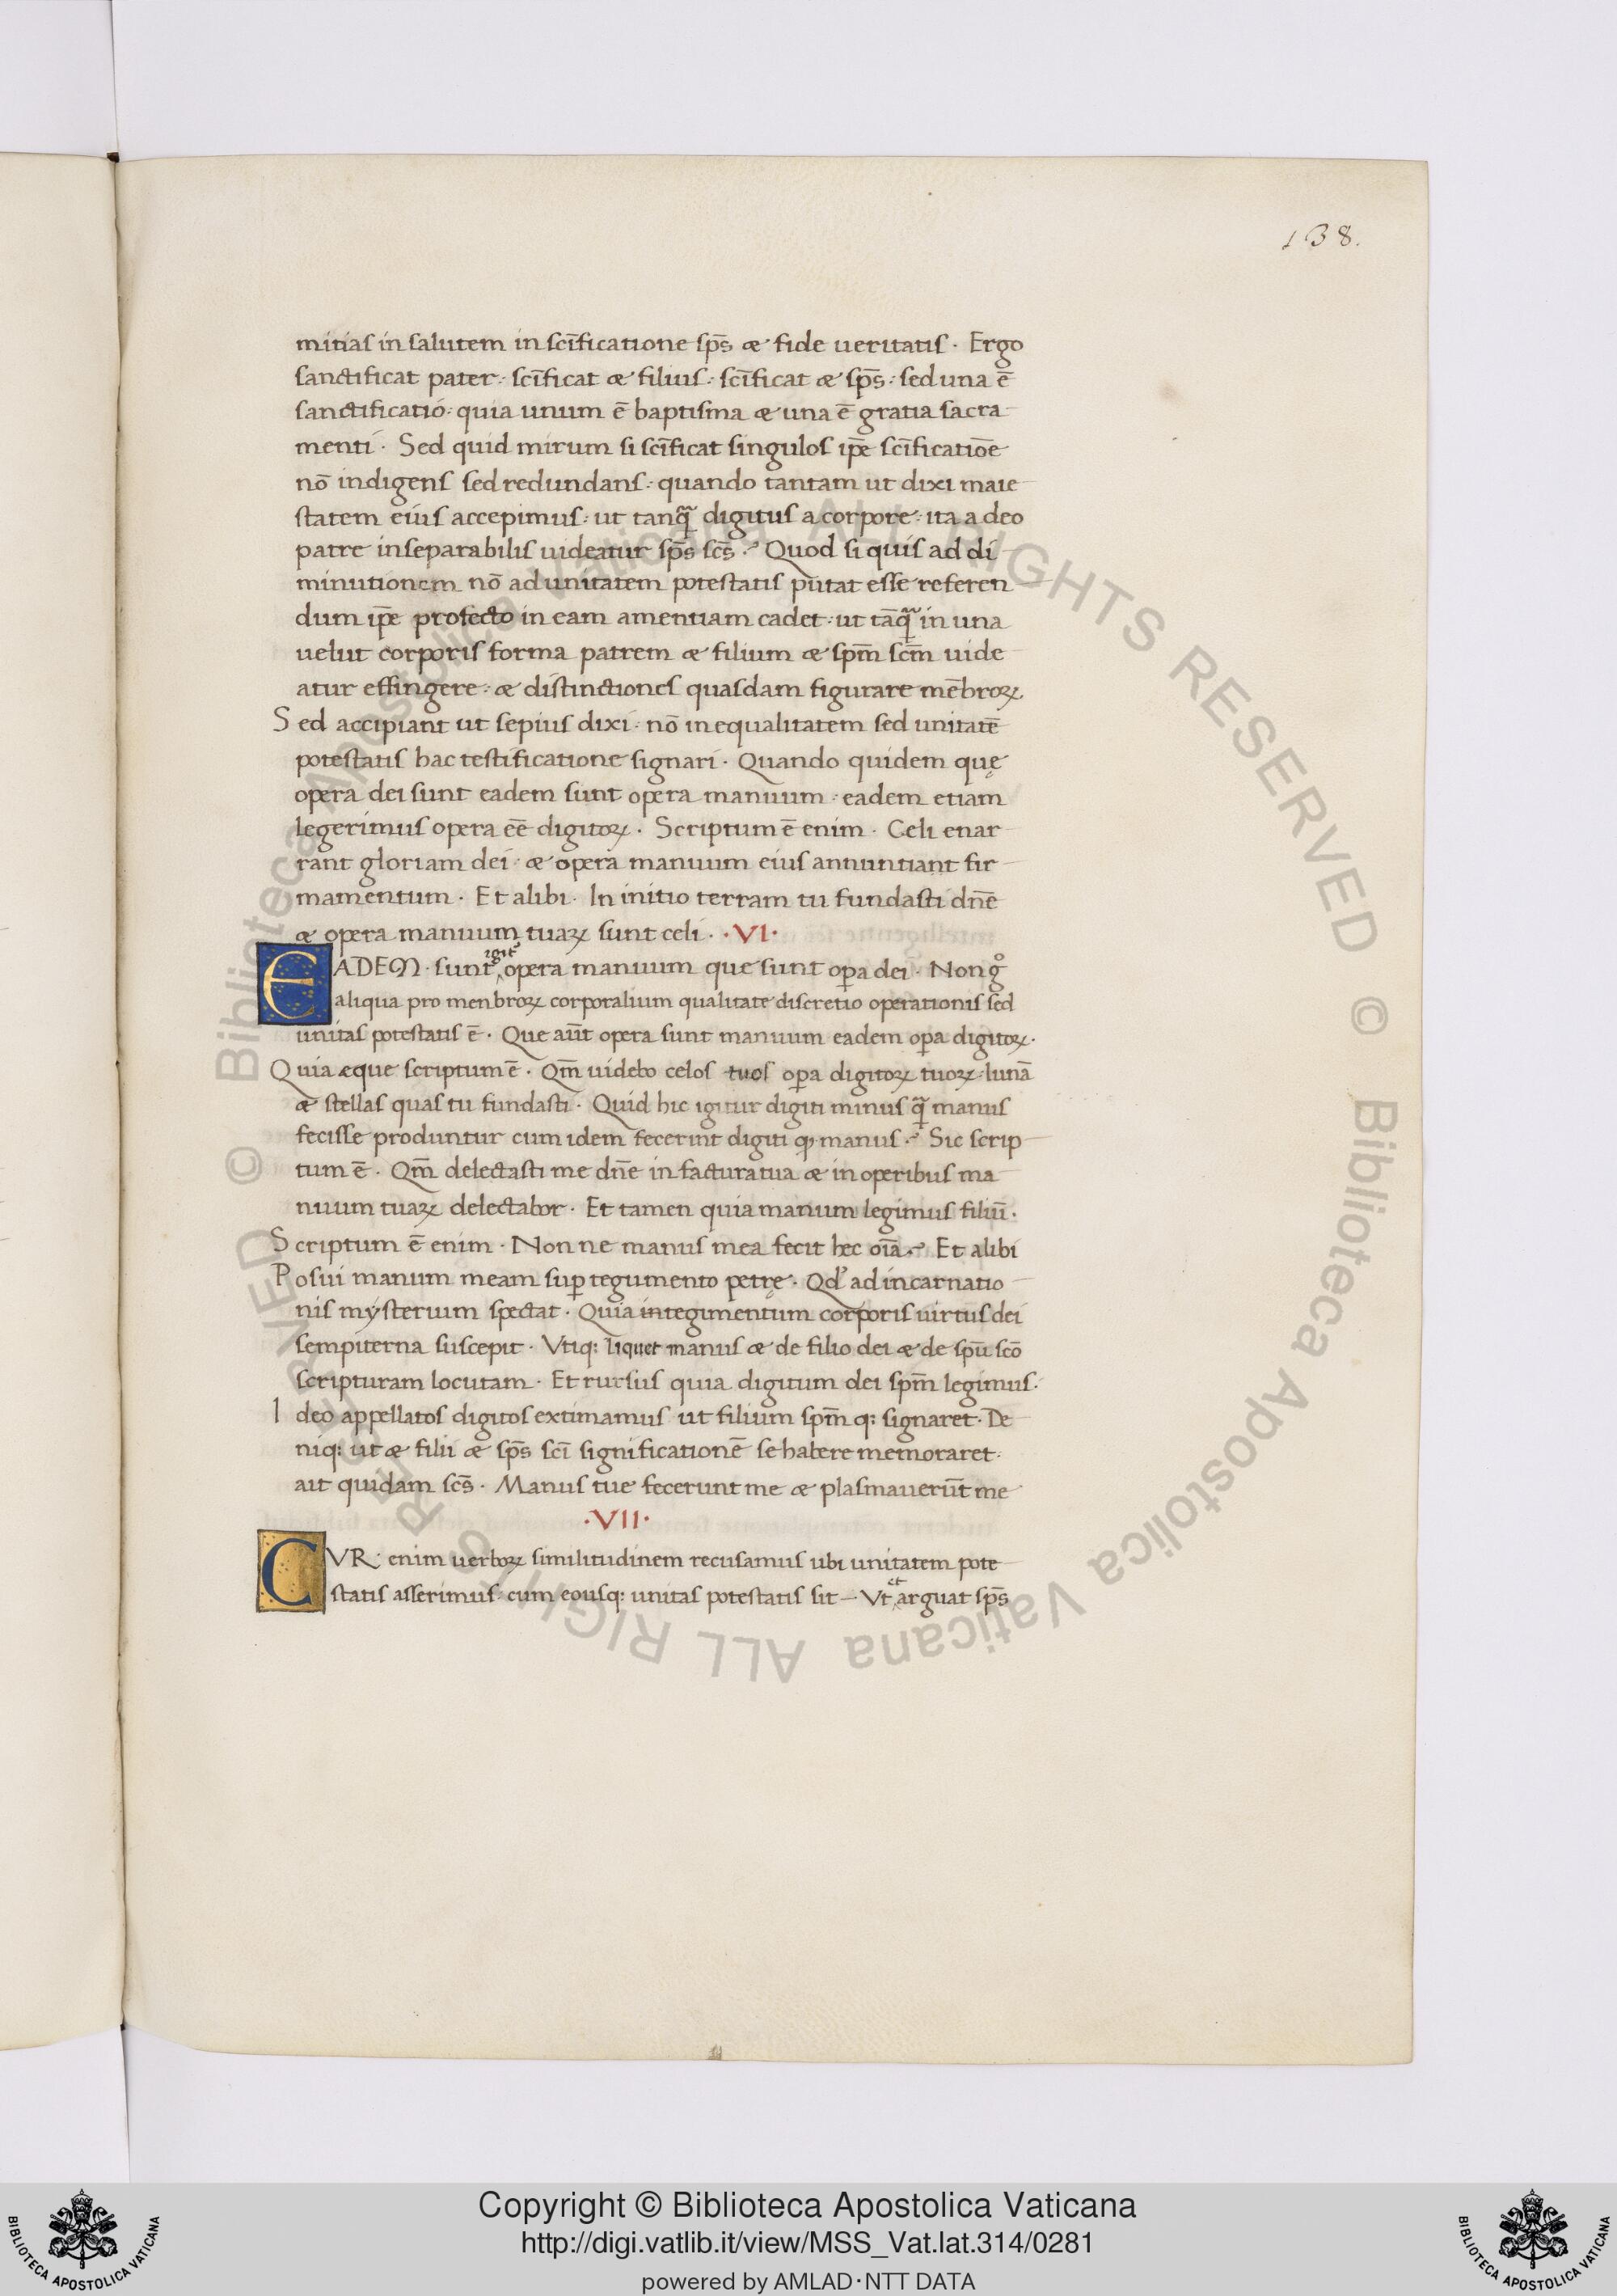 138.
mitias in salutem in scīficatione sp̄s æ fide ueritatis · Ergo
sanctificat pater : scīficat æ filius : scīficat æ sp̄s : sed una ē
sanctificatio : quia unum ē baptisma æ una ē gratia sacra
menti · Sed quid mirum si scīficat singulos ip̄e scīficatiōe
nō indigens sed redundans : quando tantam ut dixi maie
statem eius accepimus : ut tanq̄ digitus a corpore : ita a deo
patre inseparabilis uideatur sp̄s sc̄s . Quod si quis ad di
minutionem nō ad unitatem potestatis putat esse referen
dum ip̄e profecto in eam amentiam cadet : ut tāq̄ in una
uelut corporis forma patrem æ filium æ spm̄ scm̄ uide
atur effingere : æ distinctiones quasdam figurare mēbroꝝ
Sed accipiant ut sepius dixi · nō inequalitatem sed unitatē
potestatis hac testificatione signari · Quando quidem quę
opera dei sunt eadem sunt opera manuum : eadem etiam
legerimus opera eē digitoꝝ · Scriptum ē enim · Celi enar
rant gloriam dei · æ opera manuum eius annuntiant fir
mamentum · Et alibi · In initio terram tu fundasti dn̄e
æ opera manuum tuaꝝ sunt celi · ·VI·
EADEM · sunt igit͛ opera manuum que sunt oꝑa dei · Non gͦ
aliqua pro menbroꝝ corporalium qualitate discretio operationis sed
unitas potestatis ē · Que aūt opera sunt manuum eadem oꝑa digitoꝝ ·
Quia æque scriptum ē · Qm̄ uidebo celos tuos oꝑa digitoꝝ tuoꝝ : lunā
æ stellas quas tu fundasti · Quid hic igitur digiti minus q̄ manus
fecisse produntur cum idem fecerint digiti ꝙ manus . Sic scrip
tum ē · Qm̄ delectasti me dn̄e in factura tua æ in operibus ma
nuum tuaꝝ delectabor · Et tamen quia manum legimus filiū ·
Scriptum ē enim · Non ne manus mea fecit hec oīa . Et alibi
Posui manum meam suꝑ tegumento petrę · Qd̛ ad incarnatio
nis mysterium spectat · Quia integimentum corporis uirtus dei
sempiterna suscepit · Vtiq: liquet manus æ de filio dei æ de spū scō
scripturam locutam · Et rursus quia digitum dei spm̄ legimus ·
Ideo appellatos digitos extimamus ut filium spm̄ q: signaret · De
niq: ut æ filii æ sp̄s scī significationē se habere memoraret ·
ait quidam sc̄s · Manus tue fecerunt me æ plasmauerūt me
·VII·
CVR enim uerboꝝ similitudinem recusamus ubi unitatem pote
statis asserimus : cum eousq: unitas potestatis sit – Vt et arguat sp̄s
© Biblioteca Apostolica Vaticana ALL RIGHTS RESERVED © Biblioteca Apostolica Vaticana ALL RIGHTS RESERVED
BIBLIOTECA APOSTOLICA VATICANA
Copyright © Biblioteca Apostolica Vaticana
http://digi.vatlib.it/view/MSS_Vat.lat.314/0281
powered by AMLAD·NTT DATA
BIBLIOTECA APOSTOLICA VATICANA